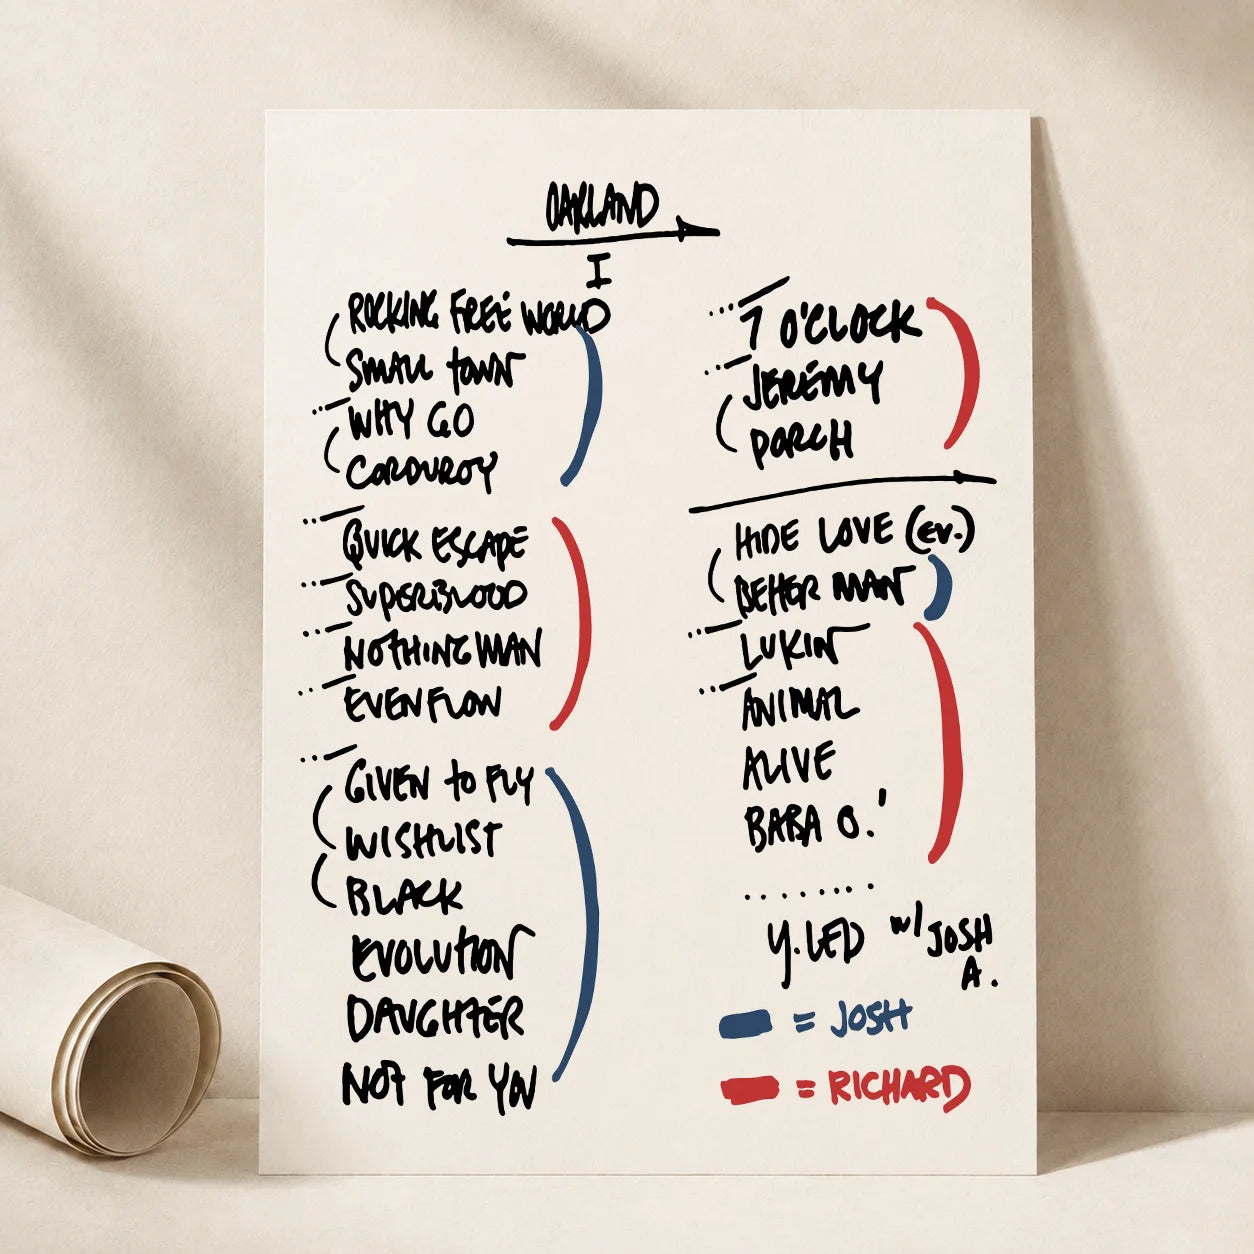 OAKLAND
I
ROCKING FREE WORLD
SMALL TOWN
WHY GO
CORDUROY
QUICK ESCAPE
SUPERBLOOD
NOTHINGMAN
EVENFLOW
GIVEN TO FLY
WISHLIST
BLACK
EVOLUTION
DAUGHTER
NOT FOR YOU
7 O'CLOCK
JEREMY
PORCH
HIDE LOVE (EV.)
BETTER MAN
LUKIN
ANIMAL
ALIVE
BABA O.'
.......
Y. LED W/ JOSH A.
= JOSH
= RICHARD